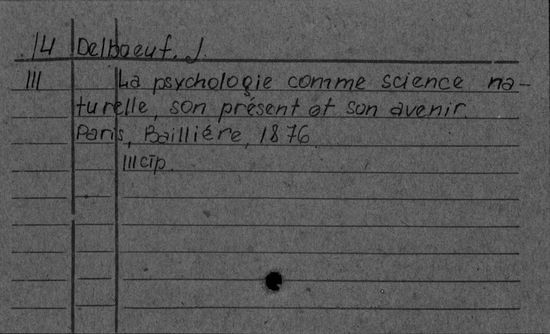 14 Delboeuf. J.
III La psychologie comme science na-
turelle, son présent et son avenir.
Paris, Baillière, 1876.
111 стр.